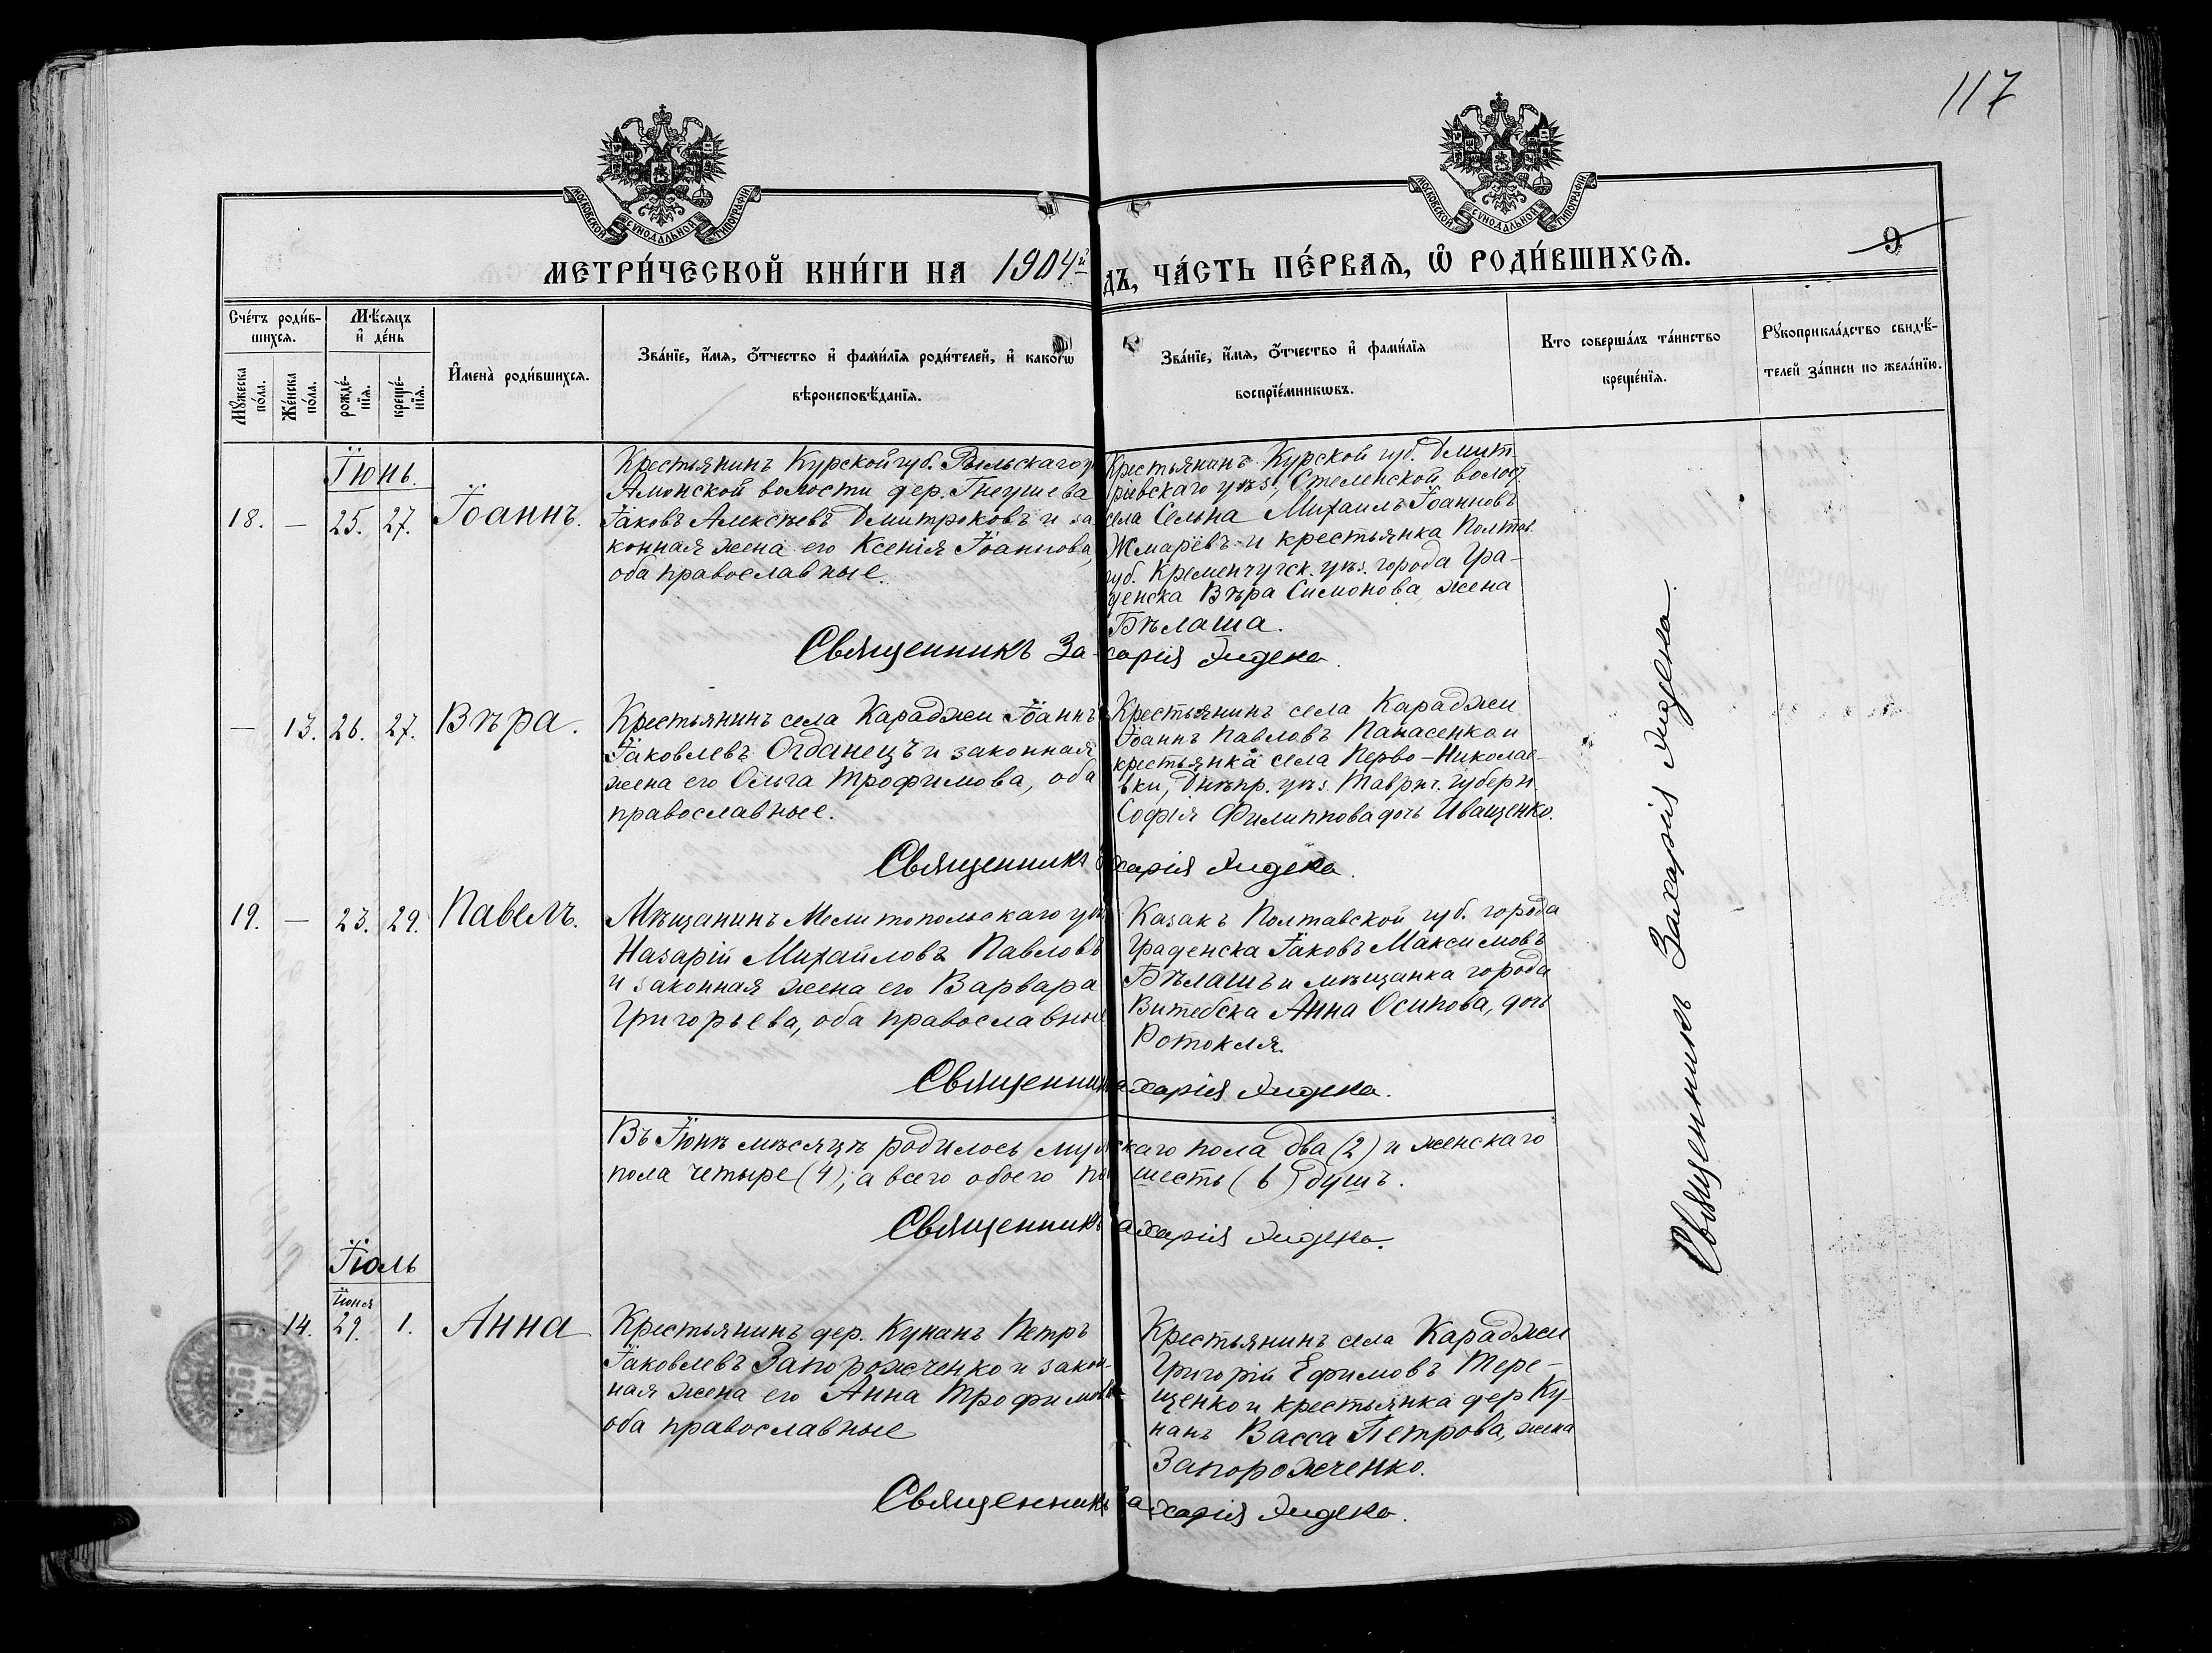 117
МОСКОВСКОЙ СѴНОДАЛЬНОЙ ТИПОГРАФІИ
МОСКОВСКОЙ СѴНОДАЛЬНОЙ ТИПОГРАФІИ
МЕТРИ́ЧЕСКОЙ КНИ́ГИ НА 1904й
ДЪ, ЧА́СТЬ ПЕ́РВАЯ, Ѡ РОДИ́ВШИХСЯ.
9
Сче́тъ роди́в-
шихся.
Мѣ́сяцъ
и҆ де́нь
Мꙋ́жеска по́ла.
Же́нска по́ла.
рожде́-
нїя.
креще́-
нїя.
И҆мена̀ роди́вшихся.
Зва́нїе, и҆́мя, о҆́тчество и҆ фами́лїя роди́телей, и҆ како́гѡ
вѣроисповѣ́данїя.
Зва́нїе, и҆́мя, о҆́тчество и҆ фами́лїя
воспрїе́мникѡвъ.
Кто соверша́лъ та́инство
креще́нїя.
Рꙋкоприкла́дство свидѣ́-
телей за́писи по жела́нїю.
Іюнь.
18. — 25. 27. Іоаннъ.
Крестьянинъ Курской губ. Рыльскаго у
Амонской волости дер. Гнеушева
Іаковъ Алексѣевъ Дмитроковъ и за-
конная жена его Ксенія Іоаннова,
оба православные.
Крестьянинъ Курской губ. Дмит-
ріевскаго уѣз., волост
села Сельна Михаилъ Іоанновъ
Жмарёвъ и крестьянка Полтав.
губ. Кременчугск. уѣз. города Гра-
денска Вѣра Симонова жена
Бѣлаша.
Священникъ За-харія
— 13. 26. 27. Вѣра.
Крестьянинъ села Караджи Іоаннъ
Іаковлевъ Огданецъ и законная
жена его Ольга Трофимова, оба
православные.
Крестьянинъ села Караджи
Іоаннъ Павловъ Панасенко и
крестьянка села Перво-Николае-
вки, Днѣпр. уѣз. Таврич. губерн
Софія Филиппова дочь Иващенко.
Священникъ харія
19. — 23. 29. Павелъ.
Мѣщанинъ Мелитопольскаго уѣз
Назарій Михайловъ Павловъ
и законная жена его Варвара
Григорьева, оба православные
Казакъ Полтавской губ. города
Граденска Іаковъ Максимовъ
Бѣлашъ и мѣщанка города
Витебска Анна Осипова, дочь
Ротокля.
Священникъ Захарія
Въ Іюнѣ мѣсяцѣ родилось мужскаго пола два (2) и женскаго
пола четыре (4), а всего обоего по шесть (6) душъ.
Священникъ Захарія
Іюль
Іюня
— 14. 29. 1. Анна
Крестьянинъ дер. Кунанъ Петръ
Іаковлевъ Запорожченко и закон-
ная жена его Анна Трофимова
оба православные
Крестьянинъ села Караджи
Григорій Ефимовъ Тере-
щенко и крестьянка дер Ку-
нанъ Васса Петрова, жена
Запорожченко.
Священникъ Захарія
Священникъ Захарія